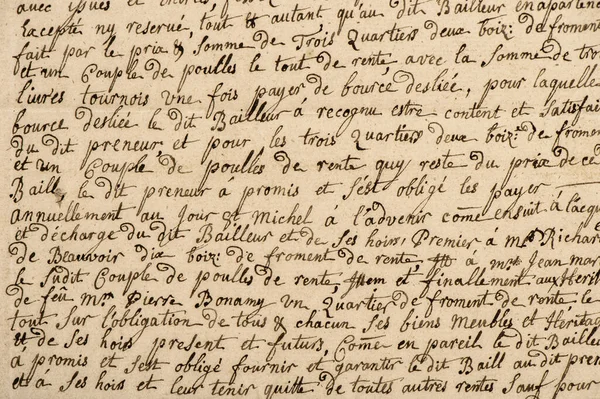 avec issues et
Excepté ny reservé, tout et autant qu'au dit Bailleur en apartenoit
fait par le prix & Somme de Trois Quartiers deux boiz: de froment
et un Couple de poulles le tout de rente avec la Somme de trois
livres tournois vne fois payer de bource desliée, pour laquelle
bource desliée le dit Bailleur à recognu estre content et Satisfait
du dit preneur et pour les trois Quartiers deux boiz: de froment
et un Couple de poulles de rente quy reste du prix de ce
Baill, le dit preneur a promis et s'est obligé les payer
annuellement au Jour St Michel à l'advenir come ensuit à l'acquit
et décharge du dit Bailleur et de Ses hoirs, Premier à Mr Richard
de Beauvoir dix boiz: de froment de rente Itt à mr Jean Mar
le Sudit Couple de poulles de rente Item et finallement aux Herit
de feu Mr Pierre Bonamy vn Quartier de froment de rente le
tout Sur l'obligation de tous & chacun Ses biens Meubles et Heritage
et de Ses hoirs present et futurs Come en pareil le dit Bailleur
à promis et s'est obligé fournir et garantir le dit Baill au dit preneur
et à Ses hoirs et leur tenir quitte de toutes autres rentes Sauf pour